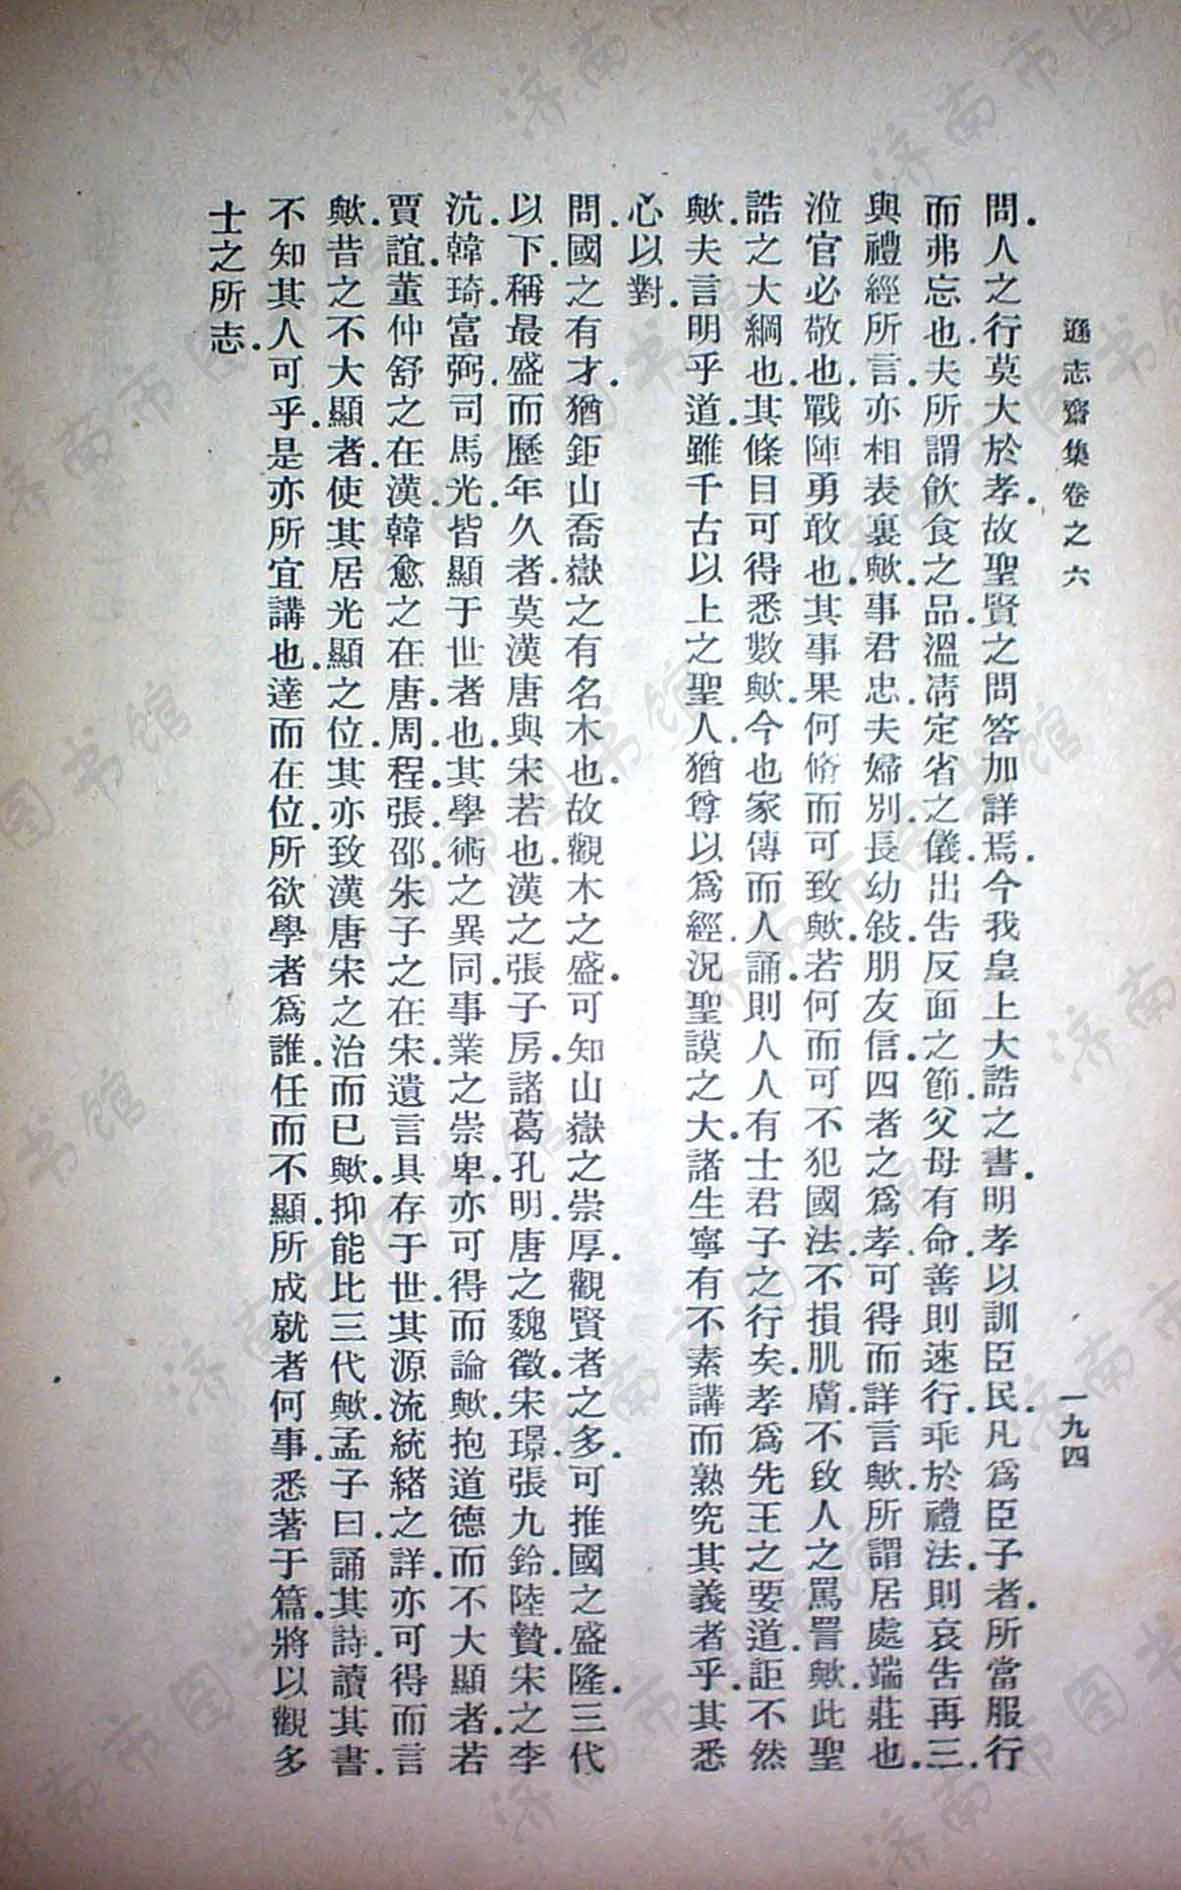 遜志齋集卷之六
一九四
問.人之行莫大於孝.故聖賢之問答加詳焉.今我皇上大誥之書.明孝以訓臣民.凡爲臣子者.所當服行
而弗忘也.夫所謂飲食之品.溫凊定省之儀.出告反面之節.父母有命.善則速行.乖於禮法.則哀告再三.
與禮經所言.亦相表裏歟.事君忠.夫婦別.長幼敍.朋友信.四者之爲孝.可得而詳言歟.所謂居處端莊也.
涖官必敬也.戰陣勇敢也.其事果何脩而可致歟.若何而可不犯國法.不損肌膚.不致人之罵詈歟.此聖
誥之大綱也.其條目可得悉數歟.今也家傳而人誦.則人人有士君子之行矣.孝爲先王之要道.詎不然
歟.夫言明乎道.雖千古以上之聖人.猶尊以爲經.況聖謨之大.諸生寧有不素講而熟究其義者乎.其悉
心以對.
問.國之有才.猶鉅山喬嶽之有名木也.故觀木之盛.可知山嶽之崇厚.觀賢者之多.可推國之盛隆.三代
以下.稱最盛而歷年久者.莫漢唐與宋若也.漢之張子房.諸葛孔明.唐之魏徵.宋璟.張九齡.陸贄.宋之李
沆.韓琦.富弼.司馬光.皆顯于世者也.其學術之異同.事業之崇卑.亦可得而論歟.抱道德而不大顯者.若
賈誼.董仲舒之在漢.韓愈之在唐.周.程.張.邵.朱子之在宋.遺言具存于世.其源流統緒之詳.亦可得而言
歟.昔之不大顯者.使其居光顯之位.其亦致漢唐宋之治而已歟.抑能比三代歟.孟子曰.誦其詩.讀其書.
不知其人可乎.是亦所宜講也.達而在位.所欲學者爲誰.任而不顯.所成就者何事.悉著于篇.將以觀多
士之所志.